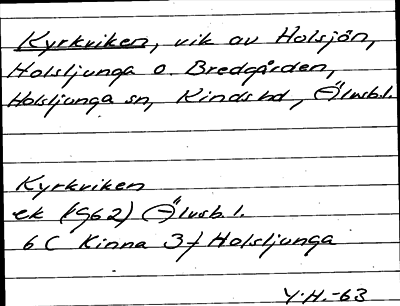 Kyrkviken, vik av Holsjön,
Holsljunga o. Bredgården,
Holsljunga sn, Kinds hd, Älvsb.l.
Kyrkviken
ek (1962) Älvsb.l.
6C Kinna 3f Holsljunga
Y.H.-63